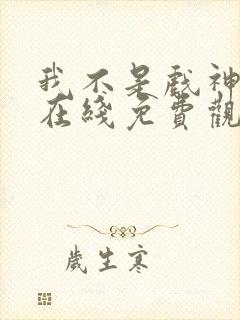 我不是戲神
在綫免費觀
歲生寒